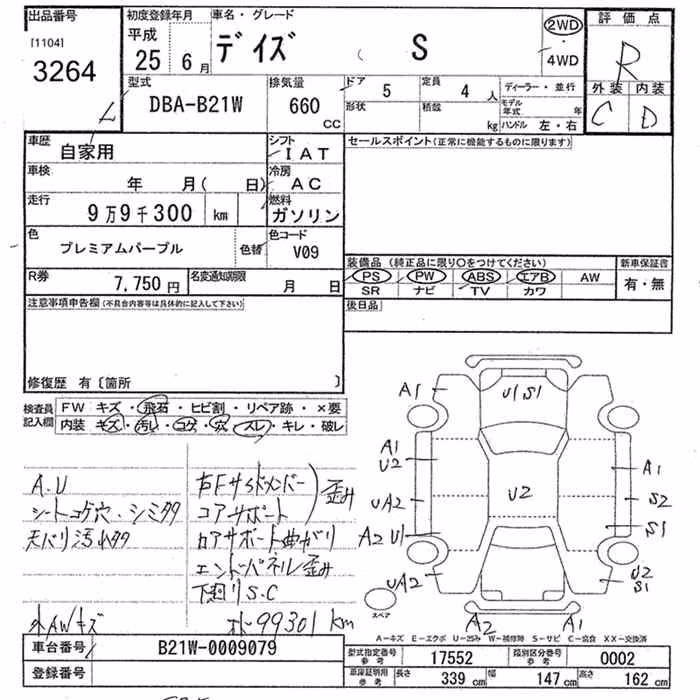 出品番号 初度登録年月 車名・グレード 評価点
[1104] 平成 2WD
3264 25 6月 デイズ ( S 4WD R
型式 排気量 ドア 定員 ディーラー・並行 外装 内装
DBA-B21W 660 CC 5 4人 モデル年式 年 C D
形状 積載 kg ハンドル 左・右
車歴 シフト セールスポイント(正常に機能するものに限ります)
自家用 IAT
車検 年 月( 日) 冷房 AC
走行 燃料
9万9千300 km ガソリン
色 色替 色コード
プレミアムパープル V09
装備品 (純正品に限り○をつけてください) 新車保証書
R券 7,750円 名変通知期限 月 日 PS PW ABS エアB AW 有・無
SR ナビ TV カワ
注意事項申告欄(不具合内容等は具体的に記入して下さい) 後日品
修復歴 有 〔箇所 〕
検査員記入欄 FW キズ・飛石・ヒビ割・リペア跡・×要
内装 キズ・汚れ・コゲ・穴・スレ・キレ・破レ
A1 U1 S1
A1
U2 A1
UA2 U2 S2
A2 U1 S1
UA2 U2
S1
A2 A1
スペア
A.U 右Fサイドメンバー
シートコゲ穴・シミタタ コアサポート 歪み
天バリ汚れタタ ロアサポート曲がり
エンドパネル歪み
下廻りS.C
外AWキズ 99301km
A-キズ E-エクボ U-凹み W-補修跡 S-サビ C-腐食 XX-交換済
車台番号 B21W-0009079 型式指定番号 参考 17552 類別区分番号 参考 0002
登録番号 車庫証明用 参考 長さ 339 cm 幅 147 cm 高さ 162 cm